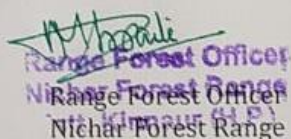 Range Forest Officer
Nichar Forest Range
Range Forest Officer
Distt. Kinnaur (H.P.)
Nichar Forest Range